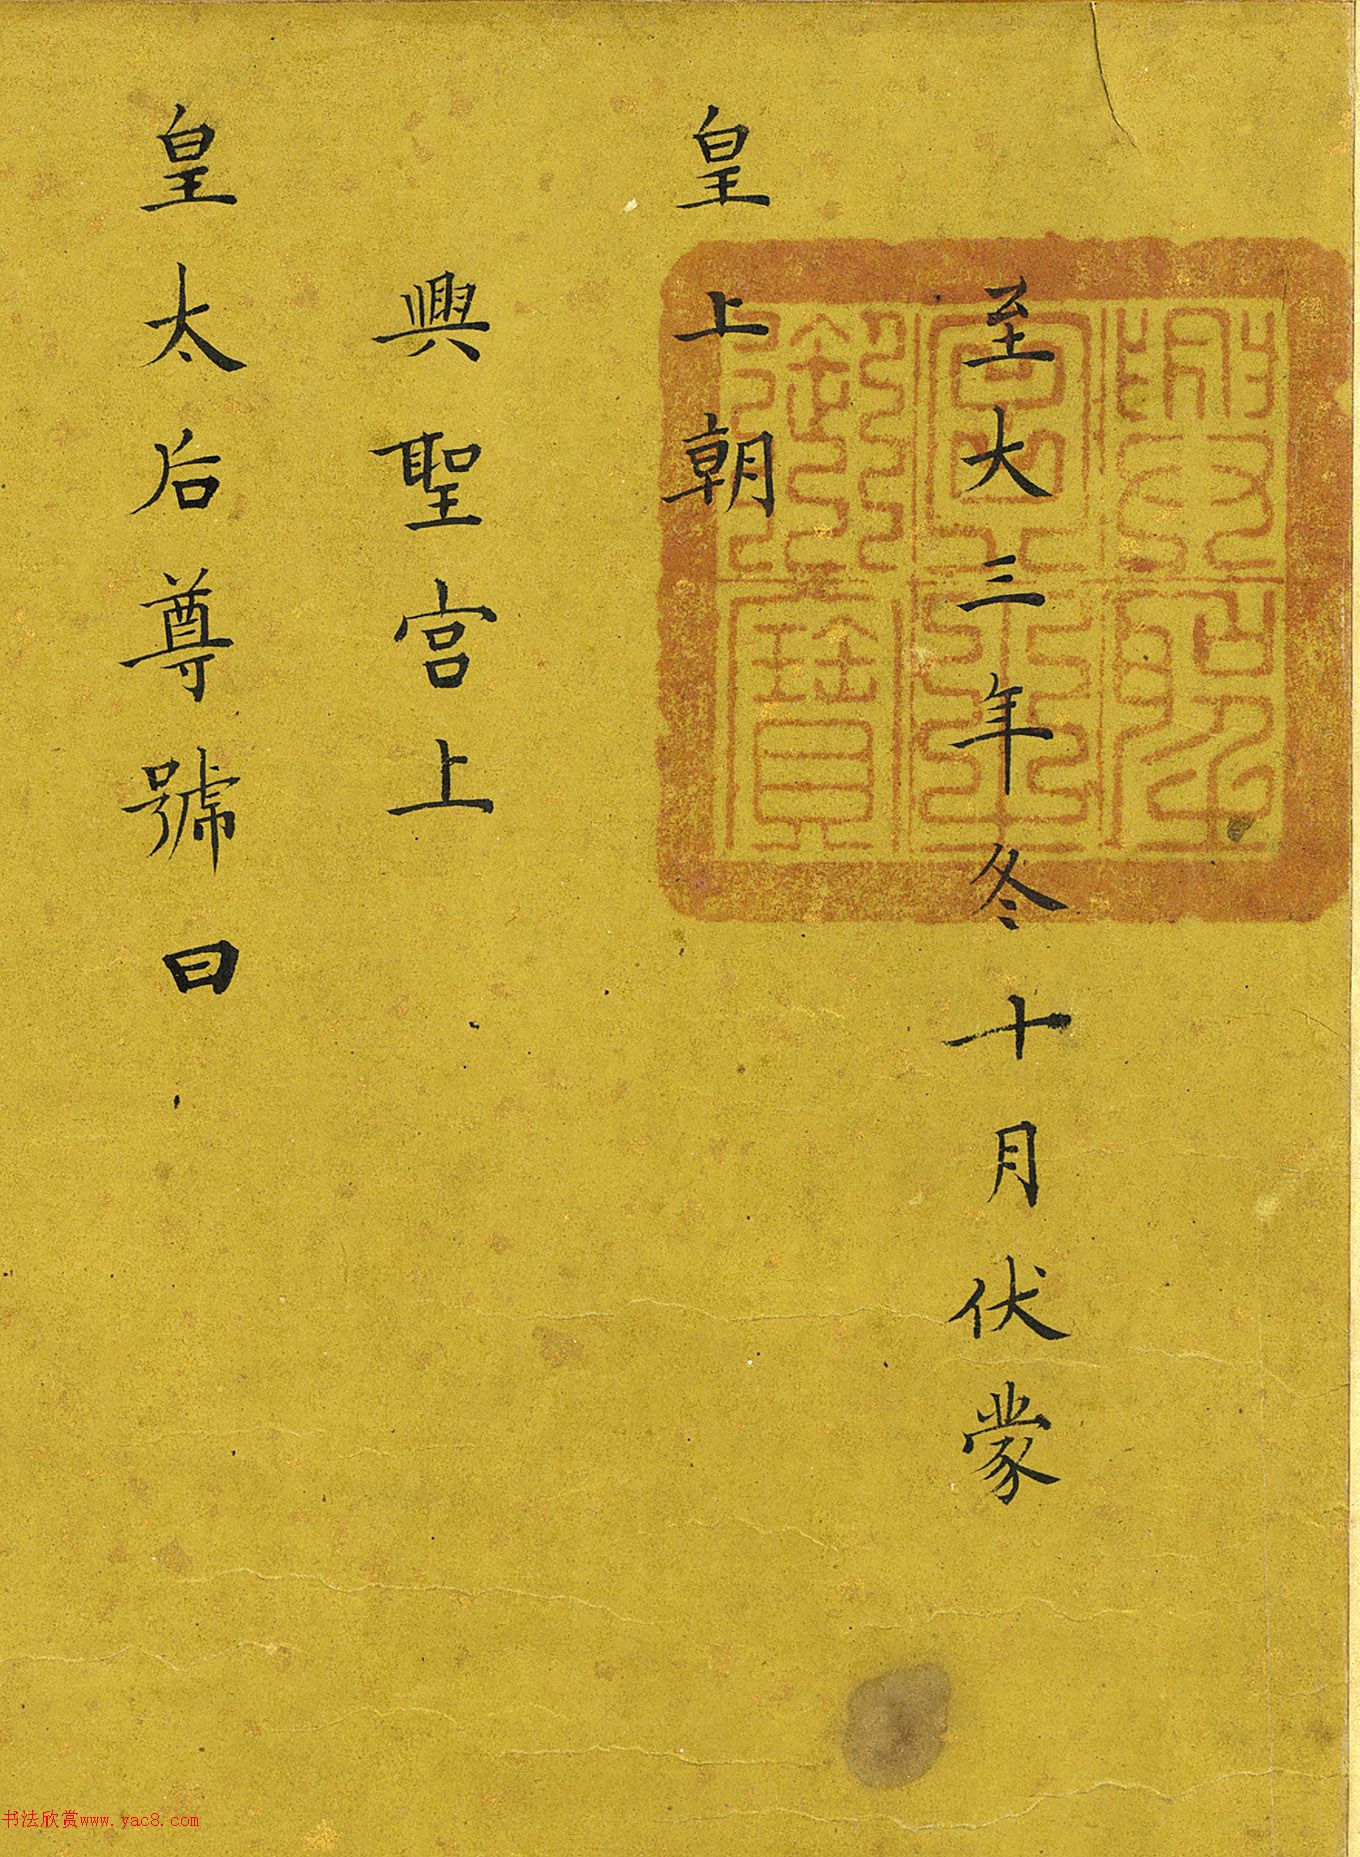 至大三年冬十月伏蒙
皇上朝
興聖宮上
皇太后尊號曰
书法欣赏www.yac8.com